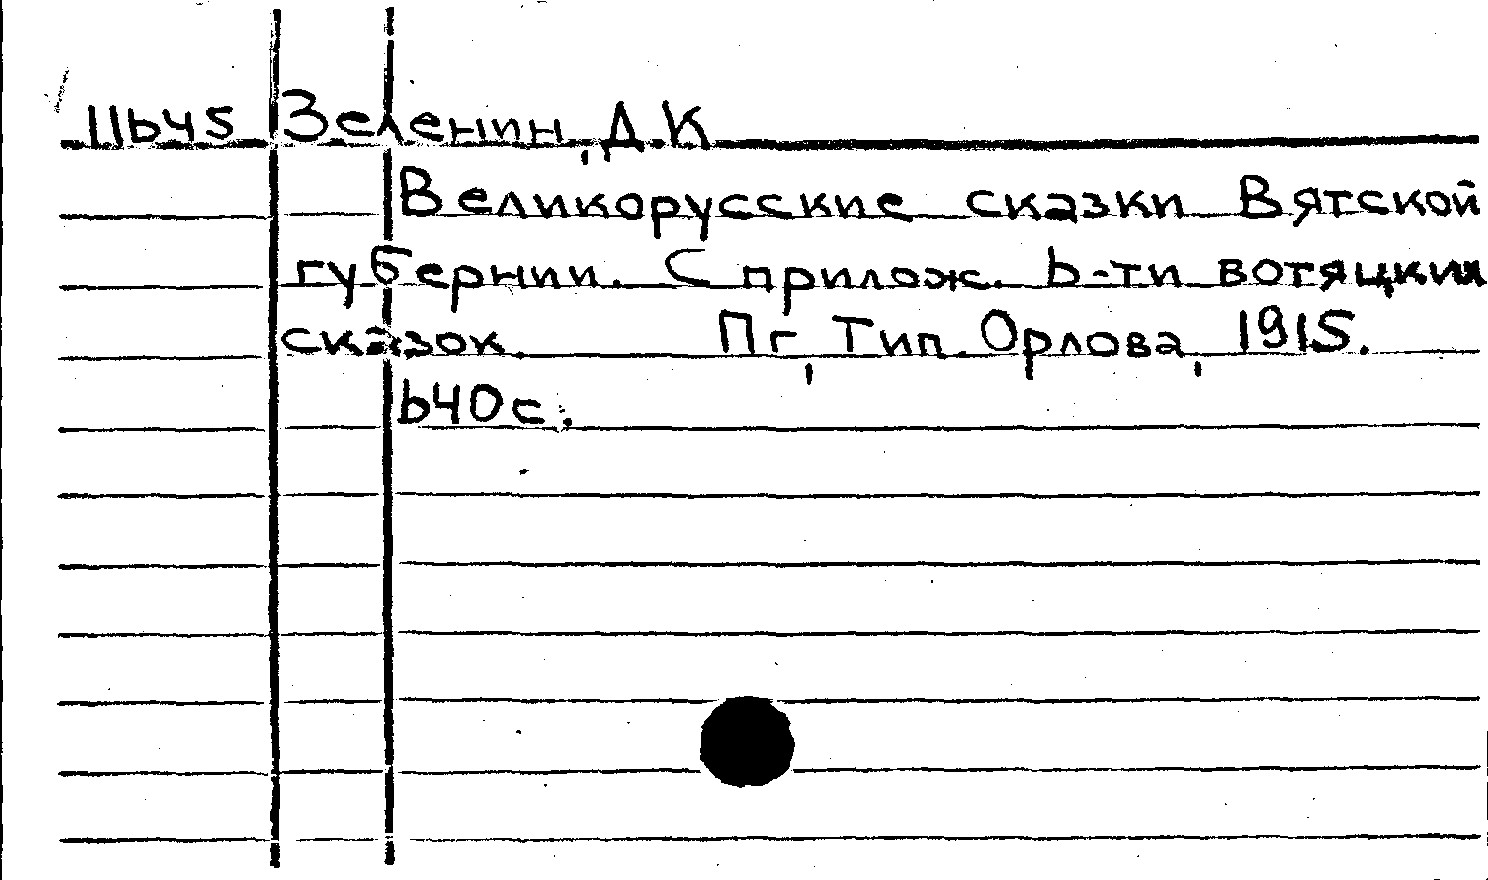 11645 Зеленин, Д.К
Великорусские сказки Вятской
губернии. С прилож. 6-ти вотяцких
сказок. Пг, Тип. Орлова, 1915.
640 с.